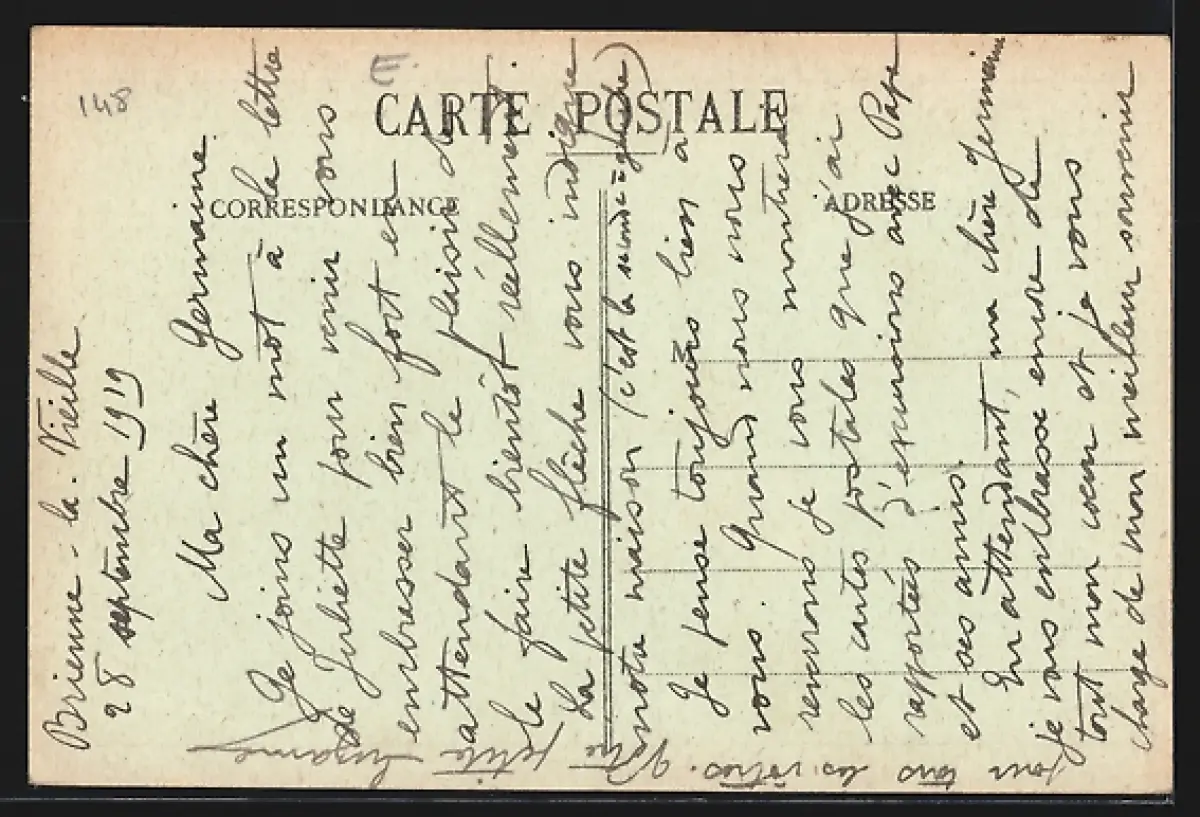 148
E.
CARTE POSTALE
CORRESPONDANCE
ADRESSE
Brienne-la-Vieille
28 septembre 1919
Ma chère Germaine.
Je joins un mot à la lettre
de Juliette pour venir vous
embrasser bien fort en
attendant le plaisir de
le faire bientôt réellement.
La petite flèche vous indique
notre maison (c'est la seconde à gauche)
Je pense toujours bien à
vous. Quand nous nous
reverrons je vous montrerai
les cartes postales que j'ai
rapportées d'excursions avec Papa
et ses amis.
En attendant, ma chère Germaine
je vous embrasse encore de
tout mon cœur et je vous
charge de mon meilleur souvenir
pour tous les vôtres. Votre petite Suzanne